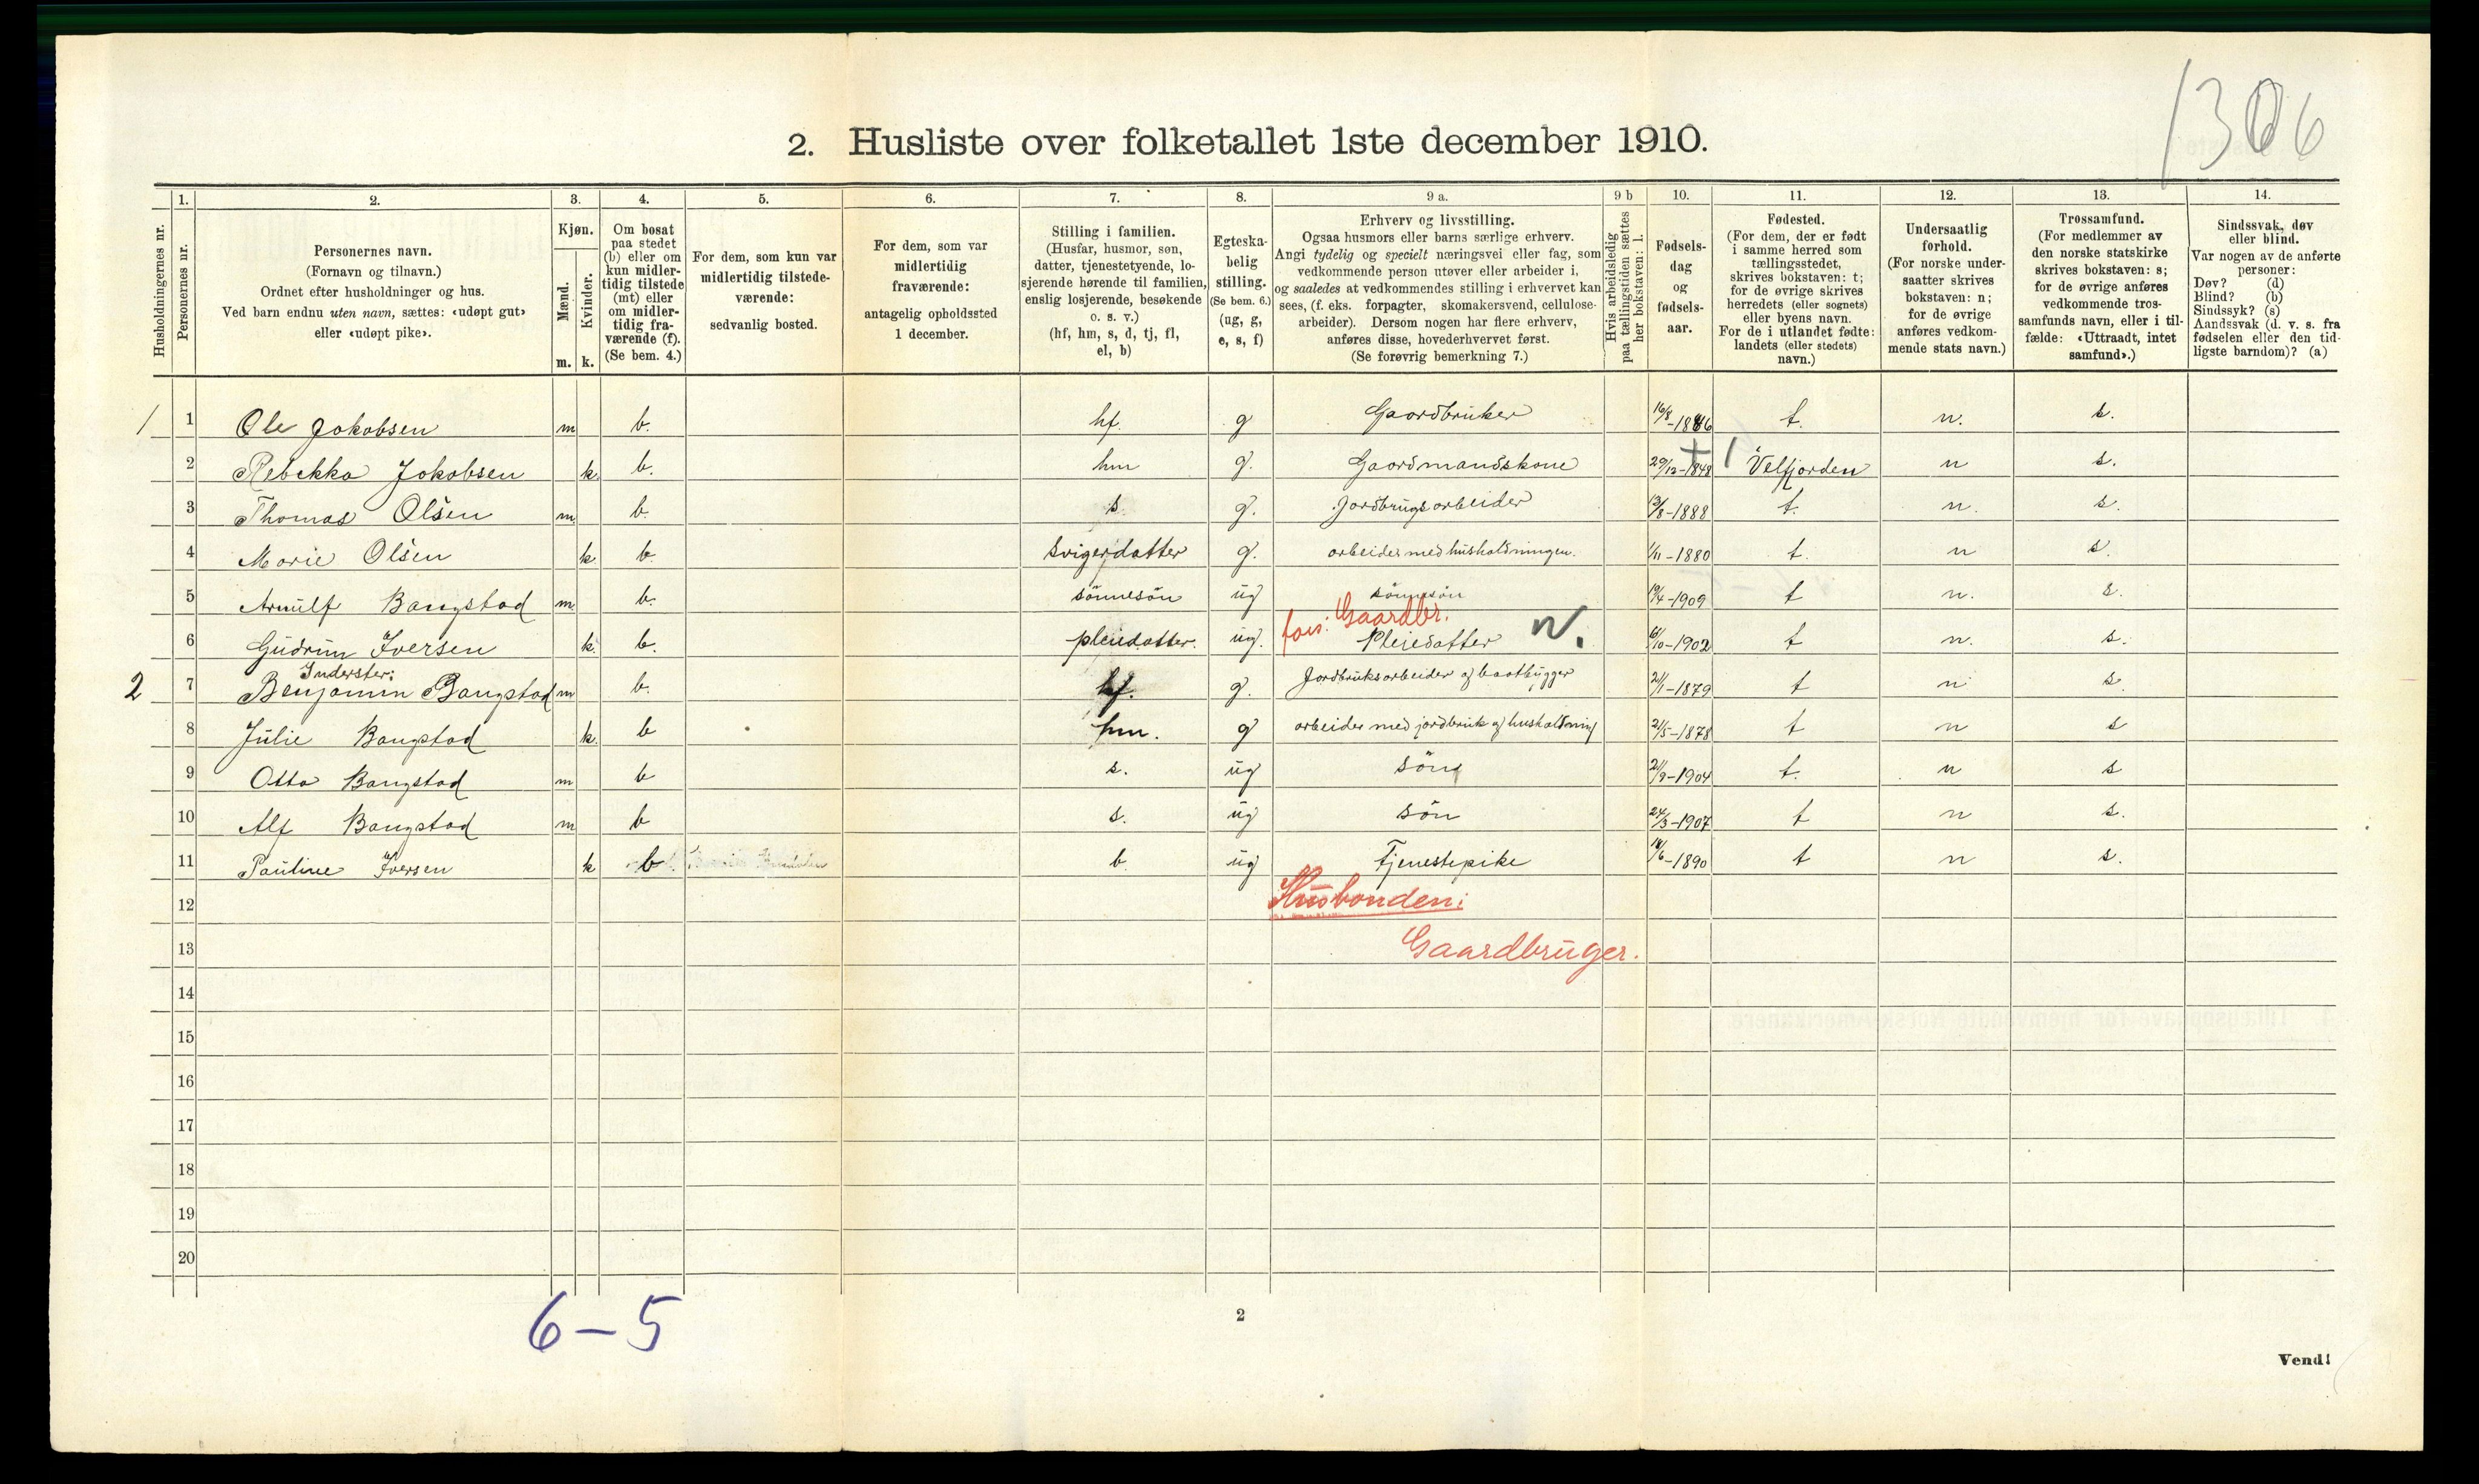 1306
2. Husliste over folketallet 1ste december 1910.
Husholdningernes nr.
1.
Personernes nr.
2.
Personernes navn.
(Fornavn og tilnavn.)
Ordnet efter husholdninger og hus.
Ved barn endnu uten navn, sættes: «udøpt gut»
eller «udøpt pike».
3.
Kjøn.
Mænd.
Kvinder.
m. k.
4.
Om bosat
paa stedet
(b) eller om
kun midler-
tidig tilstede
(mt) eller
om midler-
tidig fra-
værende (f).
(Se bem. 4.)
5.
For dem, som kun var
midlertidig tilstede-
værende:
sedvanlig bosted.
6.
For dem, som var
midlertidig
fraværende:
antagelig opholdssted
1 december.
7.
Stilling i familien.
(Husfar, husmor, søn,
datter, tjenestetyende, lo-
sjerende hørende til familien,
enslig losjerende, besøkende
o. s. v.)
(hf, hm, s, d, tj, fl,
el, b)
8.
Egteska-
belig
stilling.
(Se bem. 6.)
(ug, g,
e, s, f)
9 a.
Erhverv og livsstilling.
Ogsaa husmors eller barns særlige erhverv.
Angi tydelig og specielt næringsvei eller fag, som
vedkommende person utøver eller arbeider i,
og saaledes at vedkommendes stilling i erhvervet kan
sees, (f. eks. forpagter, skomakersvend, cellulose-
arbeider). Dersom nogen har flere erhverv,
anføres disse, hovederhvervet først.
(Se forøvrig bemerkning 7.)
9 b
Hvis arbeidsledig
paa tællingstiden sættes
her bokstaven: l.
10.
Fødsels-
dag
og
fødsels-
aar.
11.
Fødested.
(For dem, der er født
i samme herred som
tællingsstedet,
skrives bokstaven: t;
for de øvrige skrives
herredets (eller sognets)
eller byens navn.
For de i utlandet fødte:
landets (eller stedets)
navn.)
12.
Undersaatlig
forhold.
(For norske under-
saatter skrives
bokstaven: n;
for de øvrige
anføres vedkom-
mende stats navn.)
13.
Trossamfund.
(For medlemmer av
den norske statskirke
skrives bokstaven: s;
for de øvrige anføres
vedkommende tros-
samfunds navn, eller i til-
fælde: «Uttraadt, intet
samfund».)
14.
Sindssvak, døv
eller blind.
Var nogen av de anførte
personer:
Døv? (d)
Blind? (b)
Sindssyk? (s)
Aandssvak (d. v. s. fra
fødselen eller den tid-
ligste barndom)? (a)
1 1 Ole Jakobsen m b. hf. g Gaardbruker 16/8-1846 t. n. s.
2 Rebekka Jakobsen k. b. hm g. Gaardmandskone 29/12-1848 Velfjorden n s.
3 Thomas Olsen m b. s. g. Jordbrugsarbeider 13/8-1888 t. n. s.
4 Marie Olsen k b. svigerdatter g. arbeider med husholdningen. 1/11-1880 t. n s.
5 Arnulf Bangstad m b. sönnesön ug sönnesön 19/4-1909 t n. s.
fors: Gaardbr.
6 Gudrun Iversen k. b. pleiedatter. ug. Pleiedatter N. 6/10-1902 t n. s.
Inderster:
2 7 Benjamin Bangstad m b. hf. g. Jordbruksarbeider og baatbygger 21/1-1879 t n s.
8 Julie Bangstad k. b hm. g arbeider med jordbruk og husholdning 21/5-1878 t n s
9 Otto Bangstad m b s. ug sön 21/9-1904 t. n s
10 Alf Bangstad m b s. ug sön 24/3-1907 t n s.
11 Pauline Iversen k b b. ug Tjenestepike 14/6-1890 t n s.
12 Husbonden:
13 Gaardbruger.
14
15
16
17
18
19
20
6-5
2
Vend!